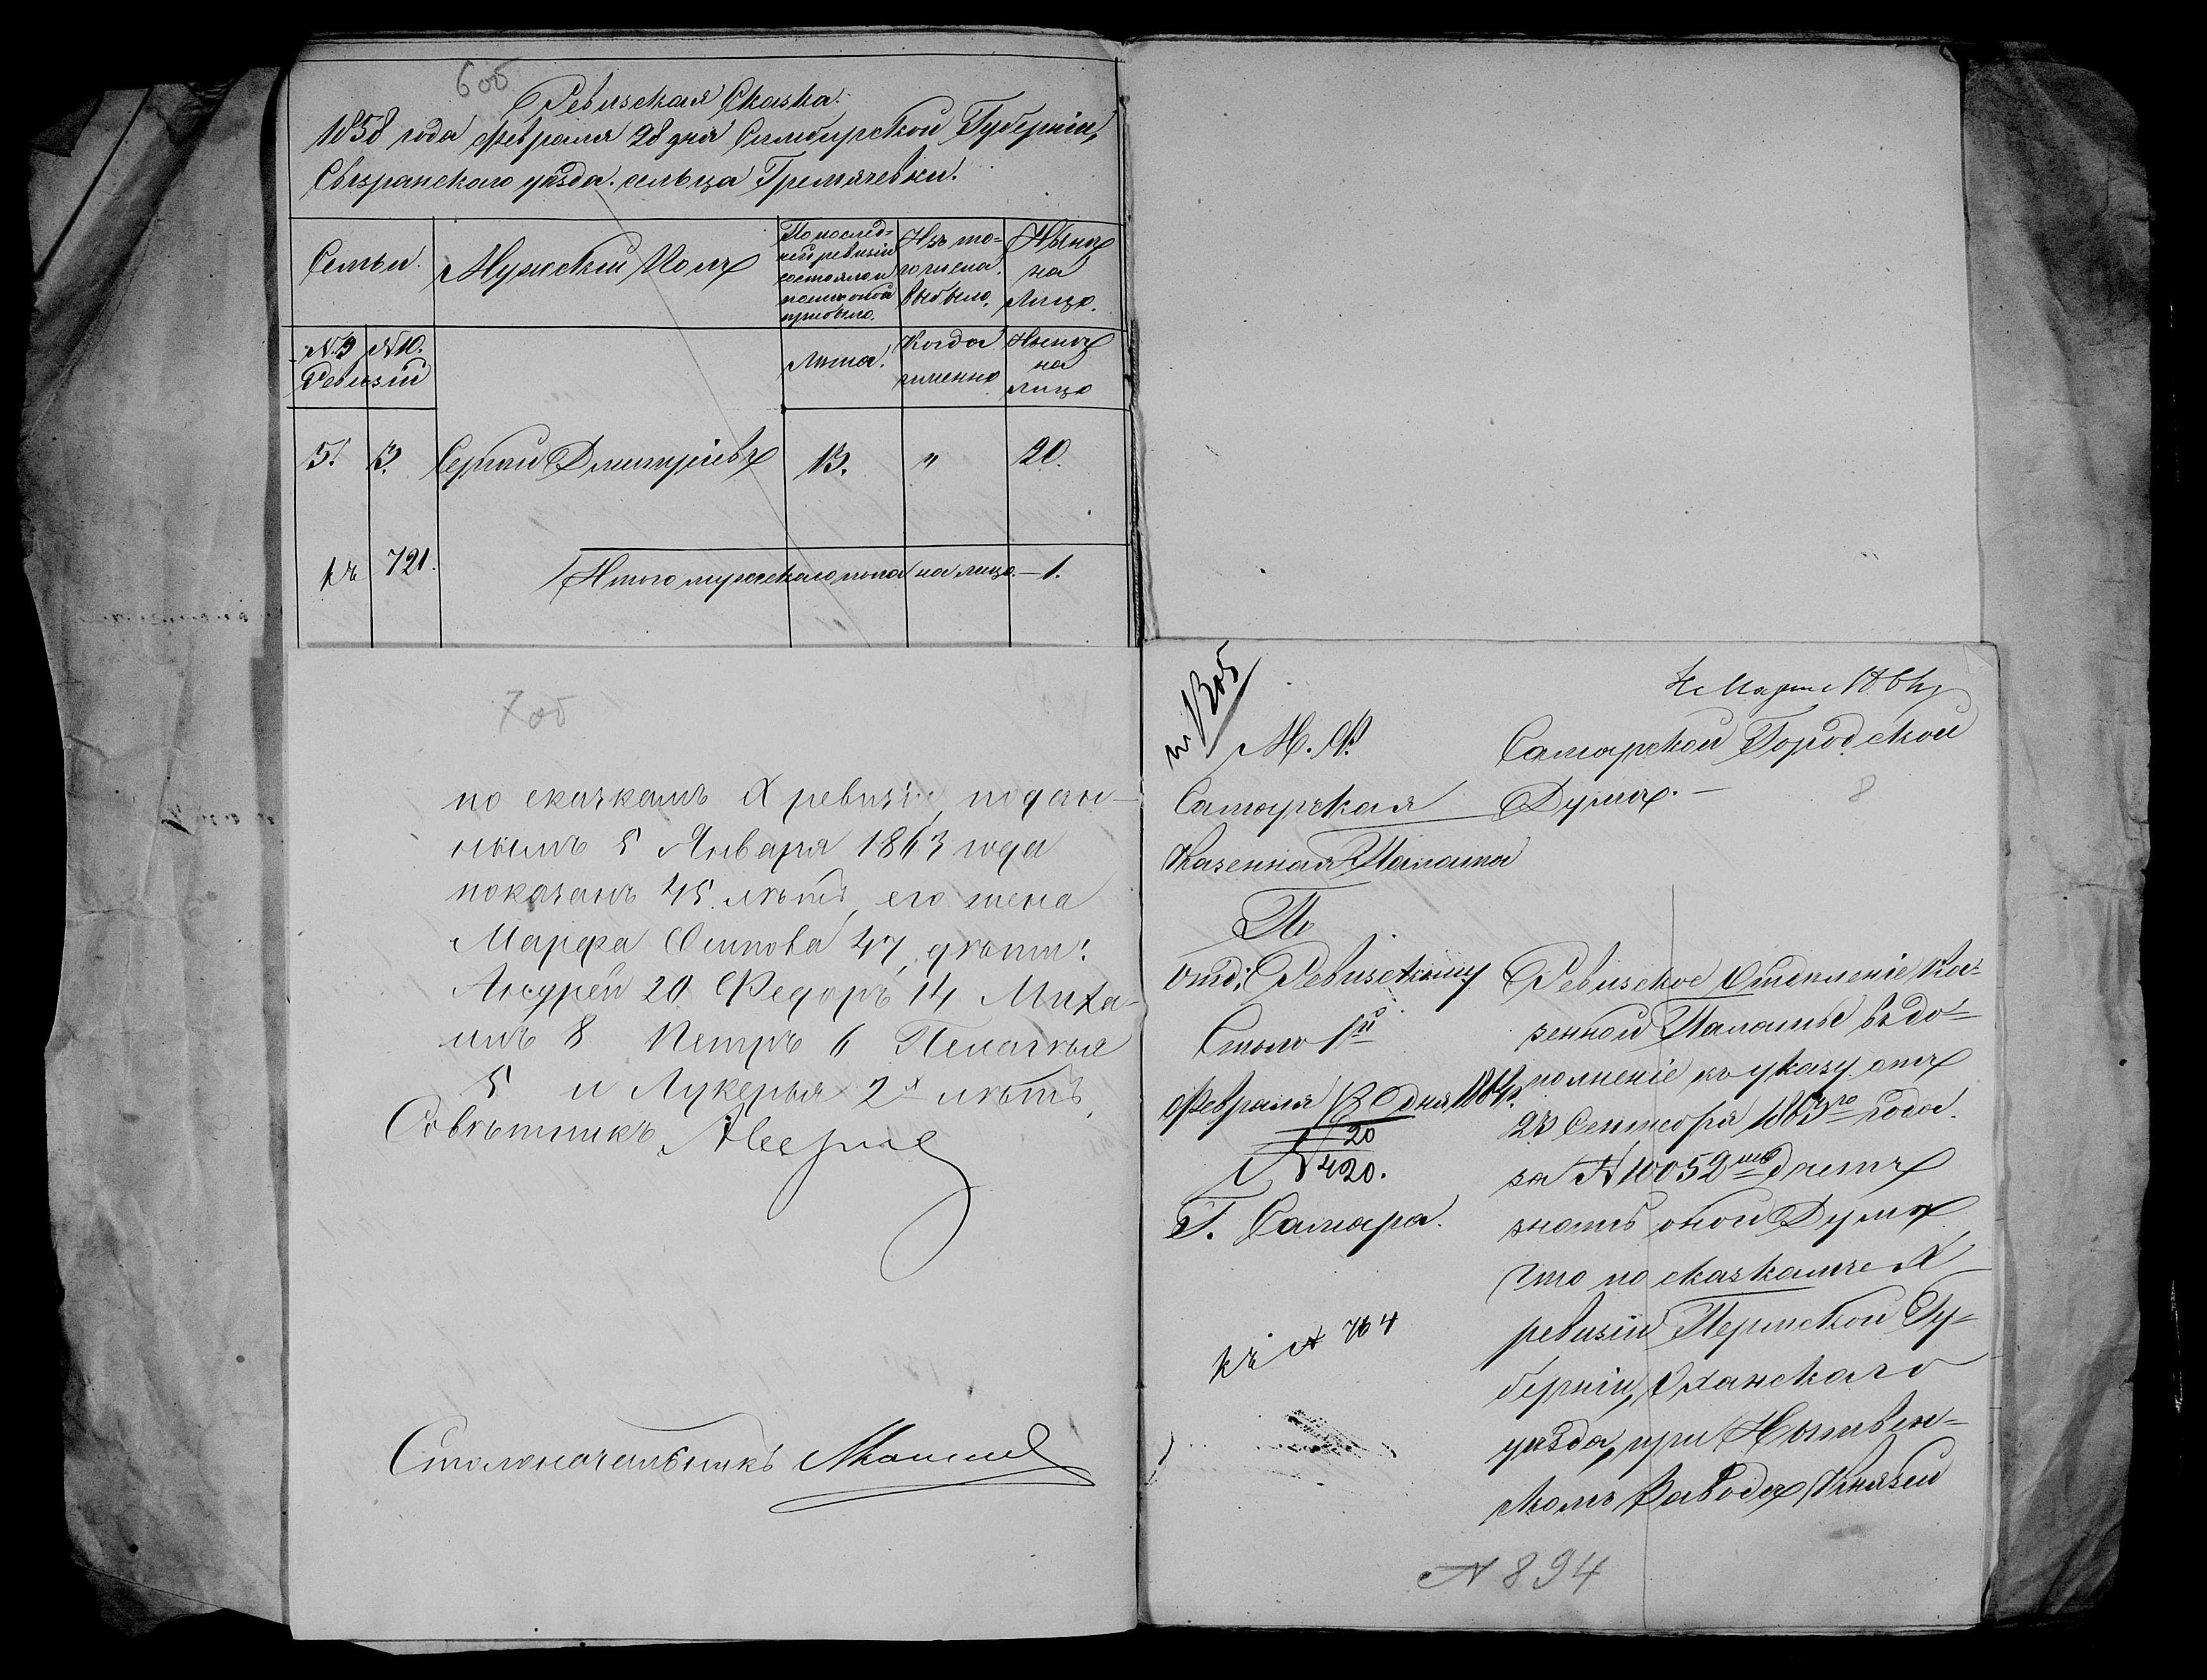 6 об
Ревизская Сказка.
1858 года февраля 28 дня Симбирской Губернии,
Сызранского уѣзда. сельца Гремячевки.
Семьи.
Мужскій Полъ
По послѣд=
ней ревизіи
состояло и
послѣ оной
прибыло.
Изъ то=
го числа
выбыло.
Нынѣ
на
Лицо.
№ 9 № 10.
Ревизій
Лѣта.
Когда
именно
Нынѣ
на
лицо
5. 3. Сергѣй Дмитріевъ 13. " 20.
къ 721.
Итого мужскаго пола на лицо — 1.
7 об
по сказкамъ X ревизіи, подан-
нымъ 5 Января 1863 года
показанъ 45 лѣтъ, его жена
Марфа Осипова 47, дѣти:
Андрей 20 Федоръ 14 Миха-
илъ 8 Петръ 6 Пелагѣя
5 и Лукерья 2х лѣтъ.
Совѣтникъ
Столоначальникъ
Марта 1864
М. Ф.
Самарская
Казенная Палата
По
Отд: Ревизскому
Столъ 1й
Февраля 18 дня 1864 г.
20
№ 420.
Г. Самара.
къ № 764
Самарской Городской
Думѣ. —
8
Ревизское Отдѣленіе Ка=
зенной Палаты въ до=
полненіе къ указу отъ
23 Сентября 1863го года.
за № 10052мъ даетъ
знать оной Думѣ
что по сказкамъ X
ревизіи Пермской Гу=
берніи, Оханскаго
уѣзда, при Нытвен=
скомъ Заводѣ Князей
№ 894